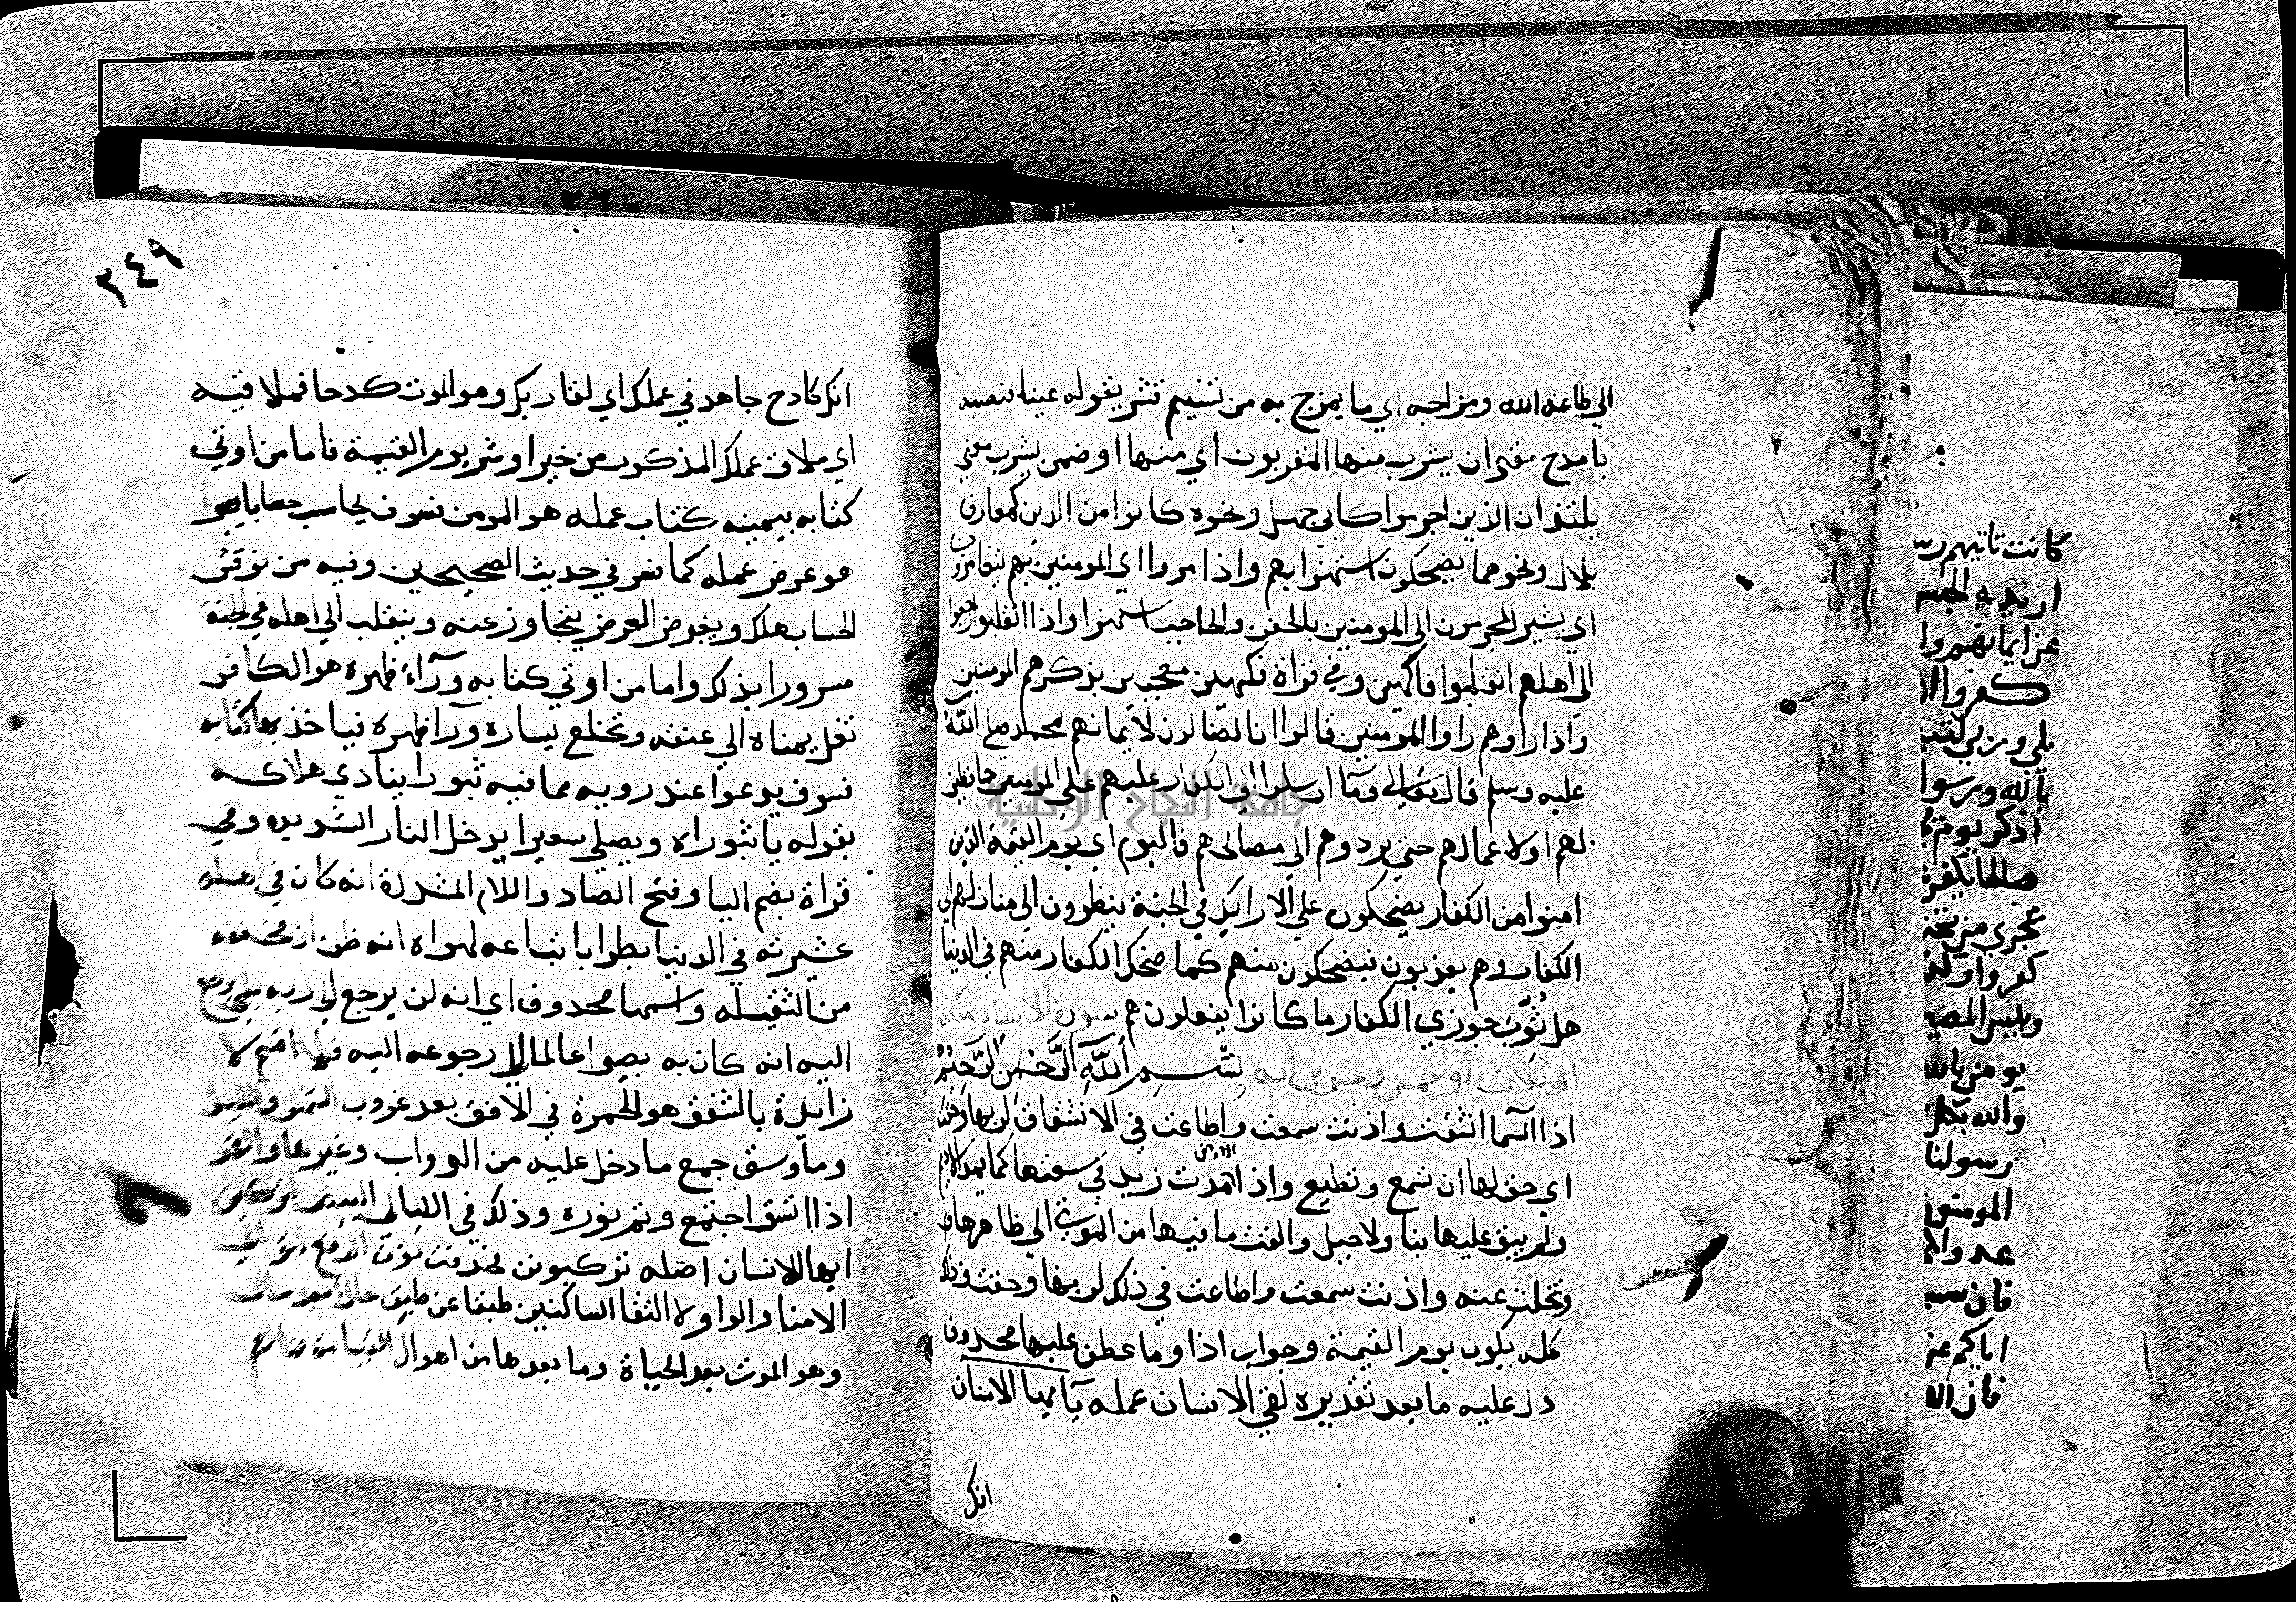 الي طاعة الله ومزاجه اي ما يمزج به من تسنيم فسر بقوله عينا فنصبه
بامدح مقدران يشرب منها المقربون اي منها او ضمن يشرب معني
يلتذ ان الذين اجرموا كابي جهل ونحوه كانوا من الذين كعمار
بلال ونحوهما يضحكون استهزا بهم واذا مروا اي المومنين بهم يتغامزون
اي يشير المجرمون الي المومنين بالجفن والحاجب استهزا واذا انقلبوا رجعوا
الي اهلهم انقلبوا فاكهين وفي قراة فكهين معجبين بذكرهم المومنين
واذا راوهم راوا المومنين قالوا ان لضالون لايمانهم بمحمد صلي الله
عليه وسلم قال تعالي وما ارسلوا الي الكفار عليهم علي المومنين حافظين
لهم او لاعمالهم حتي يردوهم الي مصالحهم فاليوم اي يوم القيمة الذين
امنوا من الكفار يضحكون علي الارايك في الجنة ينظرون الي منازلهم الي
الكفار وهم يعذبون فيضحكون منهم كما ضحك الكفار منهم في الدنيا
هل ثوب جوزي الكفار ما كانوا يفعلون هم سورة الانشقاق
او ثلاث او خمس وعشرين اية بسم الله الرحمن الرحيم
اذا السما انشقت واذنت سمعت واطاعت في الانشقاق لربها وحقت
اي حق لها ان تسمع وتطيع واذا الارض مدت زيد في سعتها كما يمد الاديم
ولم يبق عليها بنا ولا جبل والقت ما فيها من الموتي الي ظاهرها
وتخلت عنه واذنت سمعت واطاعت في ذلك لربها وحقت وذلك
كله يكون يوم القيمة وجواب اذا وما عطف عليها محذوف
دل عليه ما بعد تقديره لقي الانسان عمله يا ايها الانسان
انك
٣٤٩
انك كادح جاهد في عملك اي لقا ربك وهو الموت كدحا فملاقيه
اي ملاق عملك المذكور من خير او شر يوم القيمة فاما من اوتي
كتابه بيمينه كتاب عمله هو المومن فسوف يحاسب حسابا يسيرا
هو عرض عمله كما فسر في حديث الصحيحين وفيه من نوقش
الحساب هلك وبغوض العرض يتجاوز عنه وينقلب الي اهله في الجنة
مسرورا بذلك واما من اوتي كتابه ورآء ظهره هو الكافر
تغل يمناه الي عنقه وتخلع يساره ورا ظهره فياخذ بها كتابه
فسوف يدعوا عند رويه مما فيه ثبورا ينادي هلاكه
بقوله يا ثبوراه ويصلي سعيرا يدخل النار الشديدة وفي
قراة بضم اليا وفتح الصاد واللام المشددة انه كان في اهله
عشيرته في الدنيا بطرا باتباعه لهواه انه ظن ان مخففة
من الثقيلة واسمها محذوف اي انه لن يرجع الي ربه بلي يرجع
اليه انه كان به بصيرا عالما الي رجوعه اليه فلا اقسم لا
زايدة بالشفق هو الحمرة في الافق بعد غروب الشمس والليل
وما وسق جمع ما دخل عليه من الدواب وغيرها والقمر
اذا اتسق اجتمع وتم نوره وذلك في الليالي البيض لتركبن
ايها الانسان اصله تركبونن فحذفت نون الرفع لتوالي
الامثال والواو لالتقا الساكنين طبقا عن طبق حالا بعد حال
وهو الموت بعد الحياة وما بعدها من اهوال القيامة
كانت تاتيهم رس
اريد به الجنس
عن ايمانهم وا
كفروا ان
بلي وربي لتب
بالله ورسوا
اذكر يوم
صالحا يكفر
تجري من تحت
كفروا
وبيس المصي
يومن بالله
والله بكل
رسولنا
المومنون
عدوا
فان
اياكم عن
فان الا